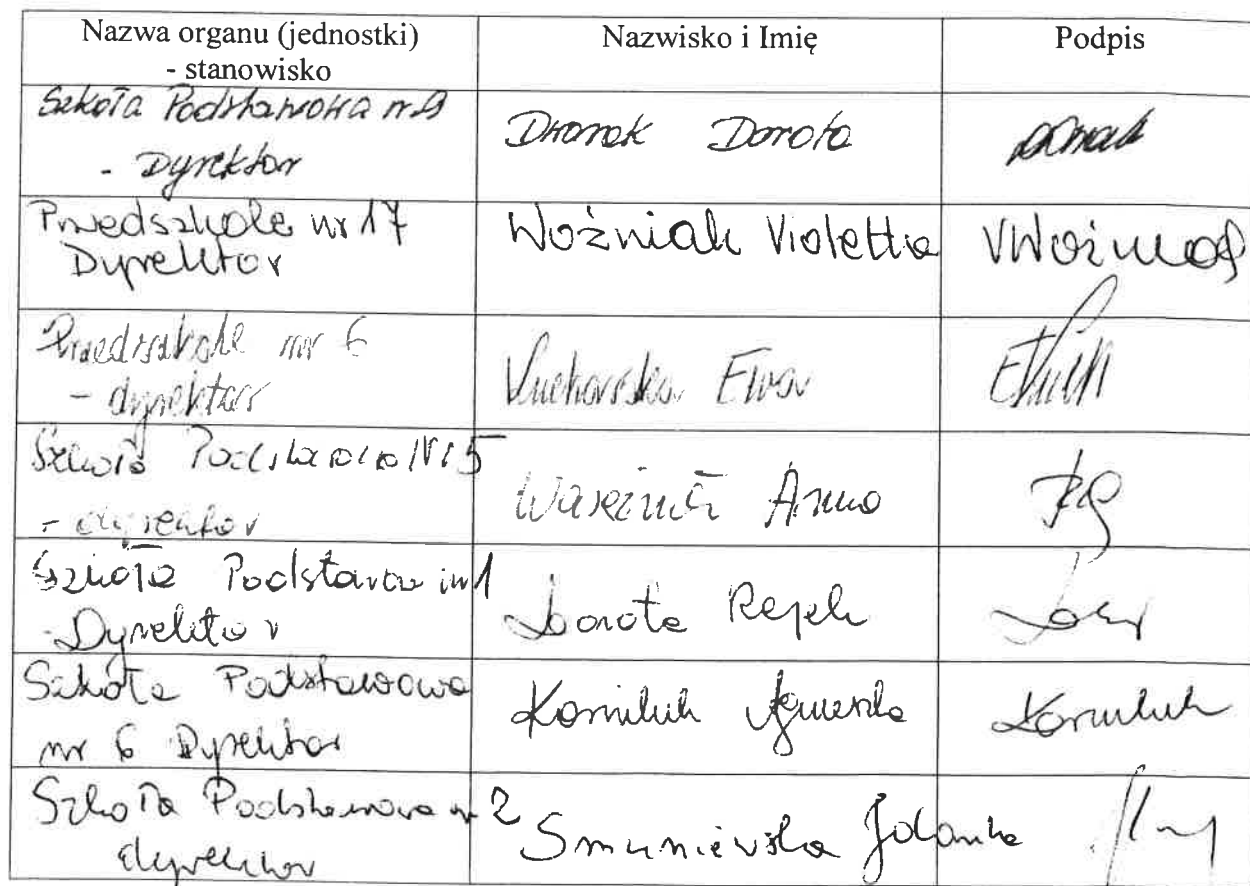 Nazwa organu (jednostki)
- stanowisko
Nazwisko i Imię
Podpis
Szkoła Podstawowa nr 9
- Dyrektor
Dronek Dorota
Przedszkole nr 17
Dyrektor
Woźniak Violetta
VWoźniak
Przedszkole nr 6
- dyrektor
Kucharska Ewa
Szkoła Podstawowa Nr 5
- dyrektor
Anna
Szkoła Podstawowa nr 1
- Dyrektor
Dorota Rejek
Szkoła Podstawowa
nr 6 Dyrektor
Korniluk Agnieszka
Korniluk
Szkoła Podstawowa nr 2
dyrektor
Smuniewska Jolanta